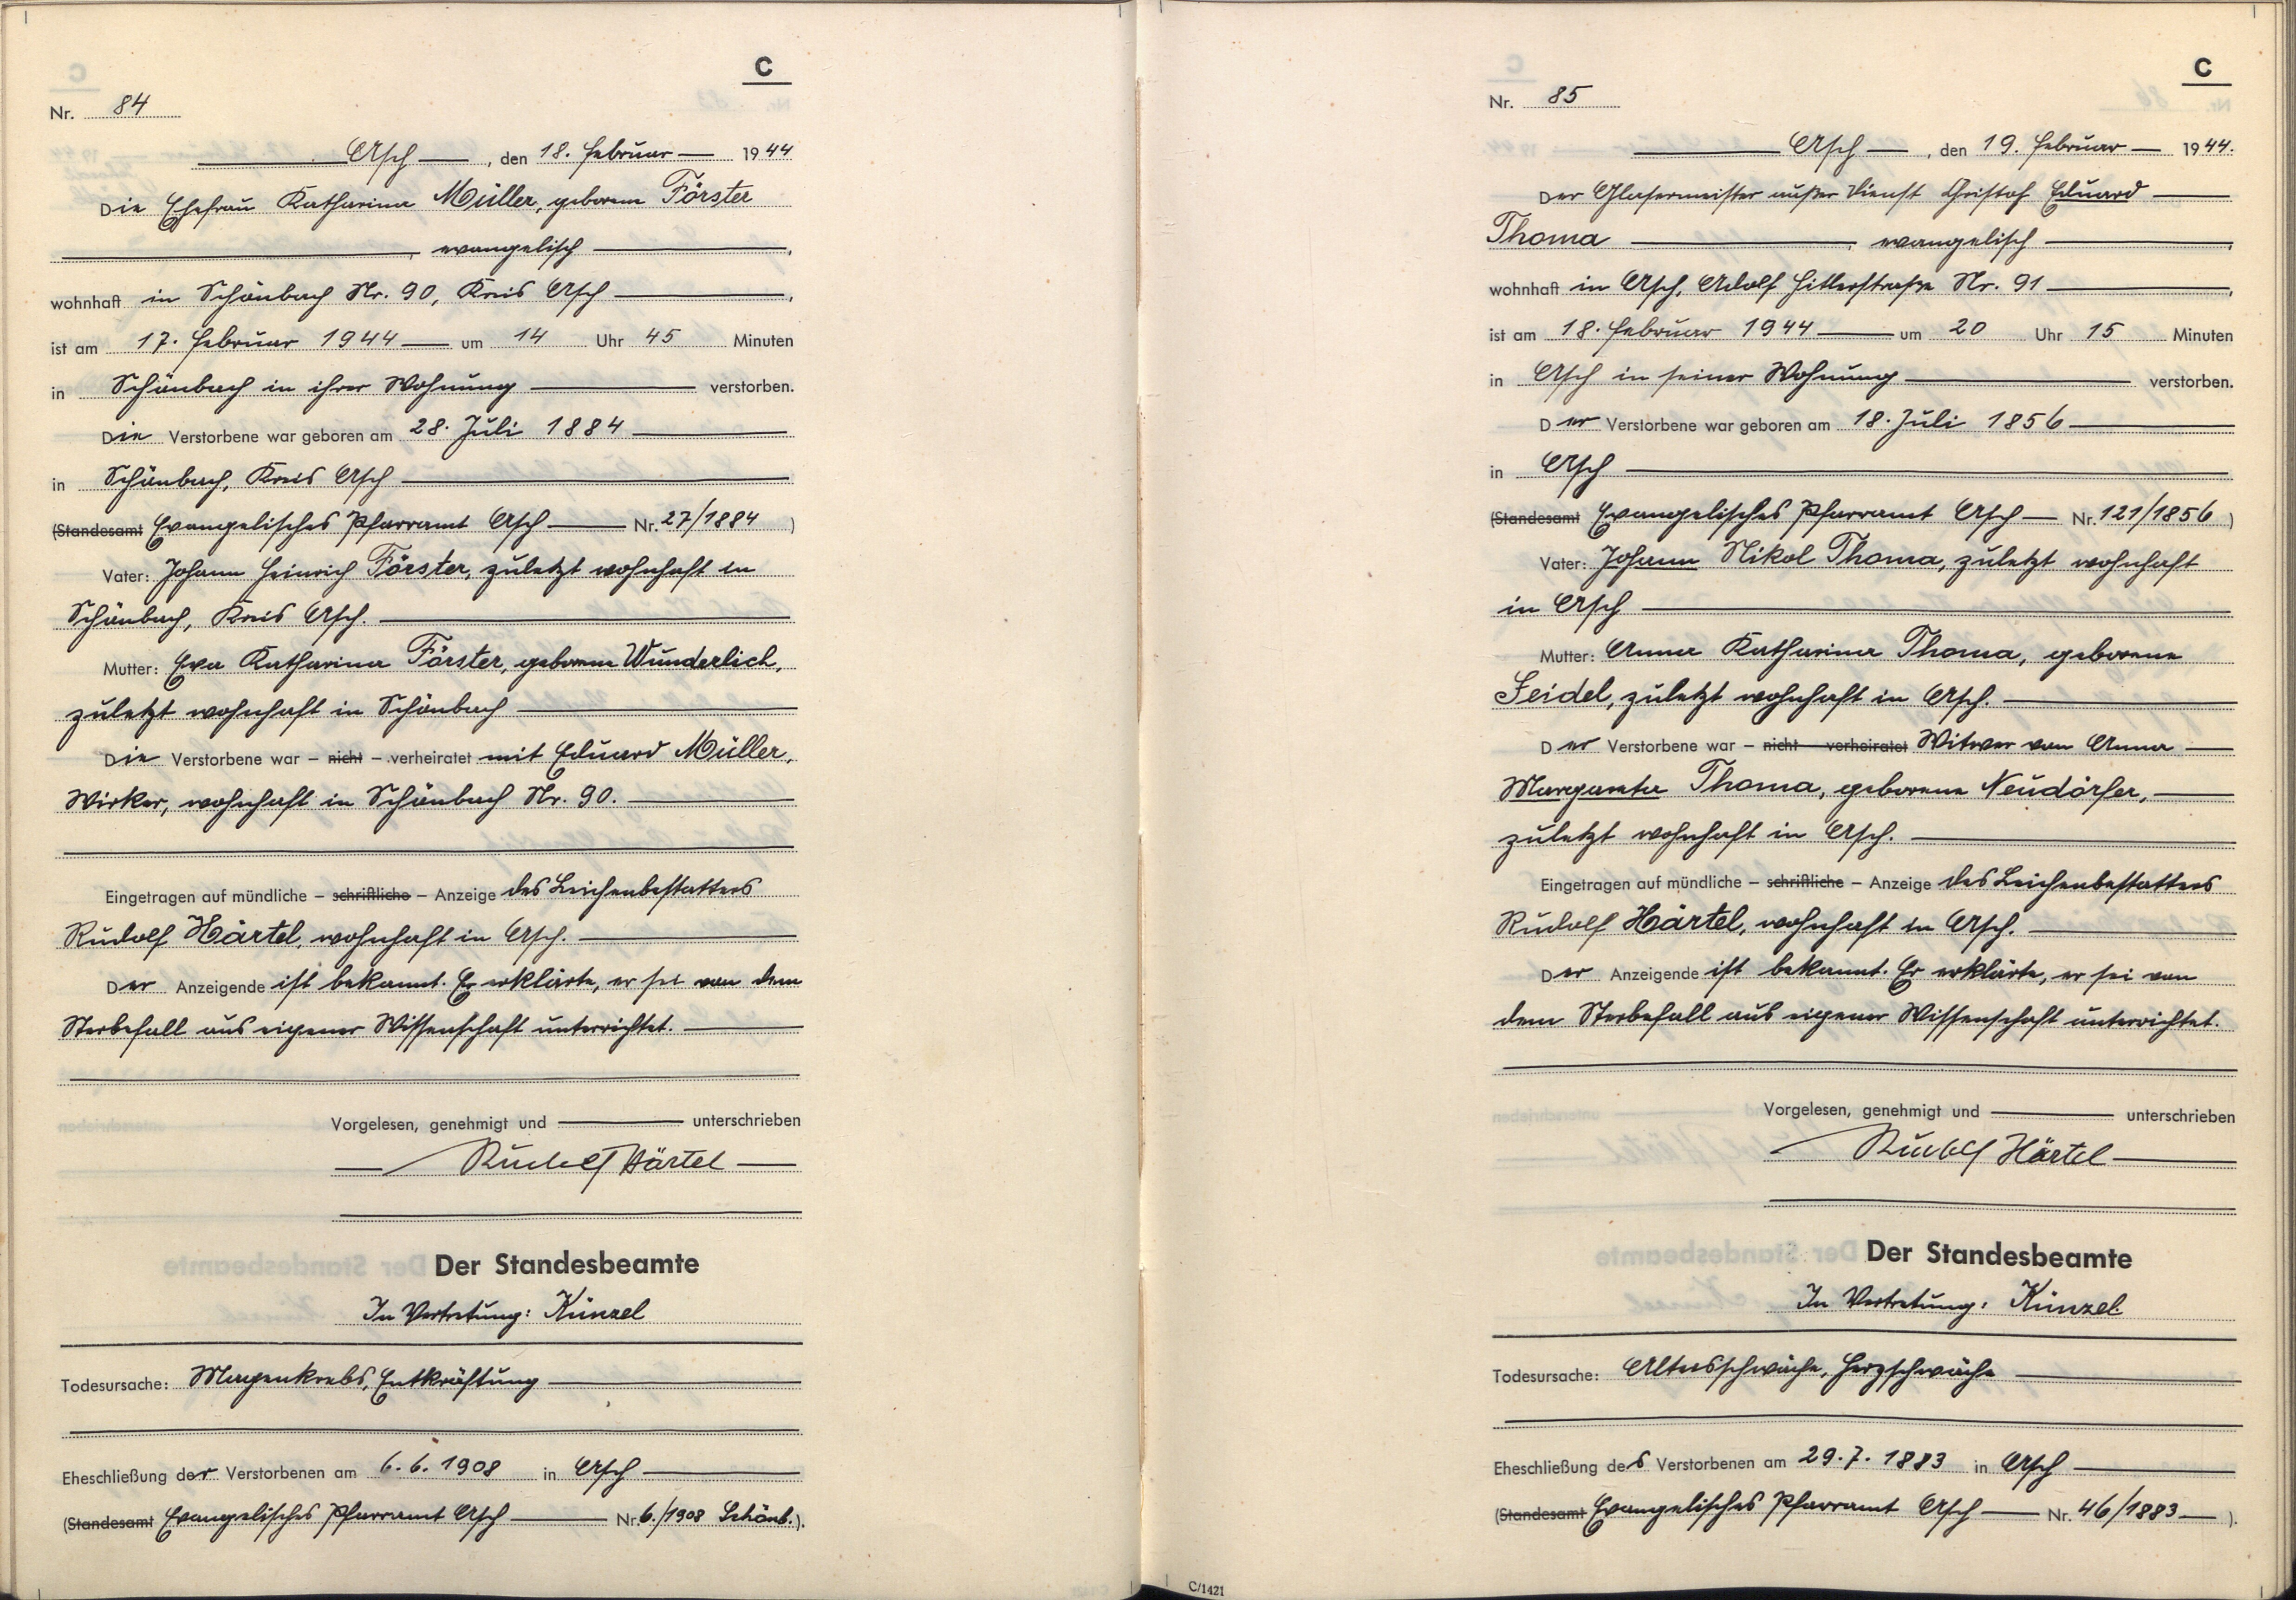 C
Nr. 84
Asch, den 18. Februar 1944
Die Ehefrau Katharina Müller, geborene Förster
, evangelisch,
wohnhaft in Schönbach Nr. 90, Kreis Asch,
ist am 17. Februar 1944 um 14 Uhr 45 Minuten
in Schönbach in ihrer Wohnung verstorben.
Die Verstorbene war geboren am 28. Juli 1884
in Schönbach, Kreis Asch
(Standesamt Evangelisches Pfarramt Asch Nr. 27/1884)
Vater: Johann Heinrich Förster, zuletzt wohnhaft in
Schönbach, Kreis Asch.
Mutter: Eva Katharina Förster, geborene Wunderlich,
zuletzt wohnhaft in Schönbach
Die Verstorbene war – nicht – verheiratet mit Eduard Müller,
Wirker, wohnhaft in Schönbach Nr. 90.
Eingetragen auf mündliche – schriftliche – Anzeige des Leichenbestatters
Rudolf Härtel, wohnhaft in Asch.
Der Anzeigende ist bekannt. Er erklärte, er sei von dem
Sterbefall aus eigener Wissenschaft unterrichtet.
Vorgelesen, genehmigt und unterschrieben
Rudolf Härtel
Der Standesbeamte
In Vertretung: Künzel
Todesursache: Magenkrebs, Entkräftung
Eheschließung der Verstorbenen am 6.6.1908 in Asch
(Standesamt Evangelisches Pfarramt Asch Nr. 6./1908 Schönb.).
C
Nr. 85
Asch, den 19. Februar 1944.
Der Glasermeister außer Dienst Christof Eduard
Thoma, evangelisch,
wohnhaft in Asch, Adolf Hitlerstraße Nr. 91,
ist am 18. Februar 1944 um 20 Uhr 15 Minuten
in Asch in seiner Wohnung verstorben.
Der Verstorbene war geboren am 18. Juli 1856
in Asch
(Standesamt Evangelisches Pfarramt Asch Nr. 121/1856)
Vater: Johann Nikol Thoma, zuletzt wohnhaft
in Asch
Mutter: Anna Katharina Thoma, geborene
Seidel, zuletzt wohnhaft in Asch.
Der Verstorbene war – nicht – verheiratet Witwer von Anna
Margareta Thoma, geborene Neudörfer,
zuletzt wohnhaft in Asch.
Eingetragen auf mündliche – schriftliche – Anzeige des Leichenbestatters
Rudolf Härtel, wohnhaft in Asch.
Der Anzeigende ist bekannt. Er erklärte, er sei von
dem Sterbefall aus eigener Wissenschaft unterrichtet.
Vorgelesen, genehmigt und unterschrieben
Rudolf Härtel
Der Standesbeamte
In Vertretung: Künzel
Todesursache: Altersschwäche, Herzschwäche
Eheschließung des Verstorbenen am 29.7.1883 in Asch
(Standesamt Evangelisches Pfarramt Asch Nr. 46/1883).
C/1421